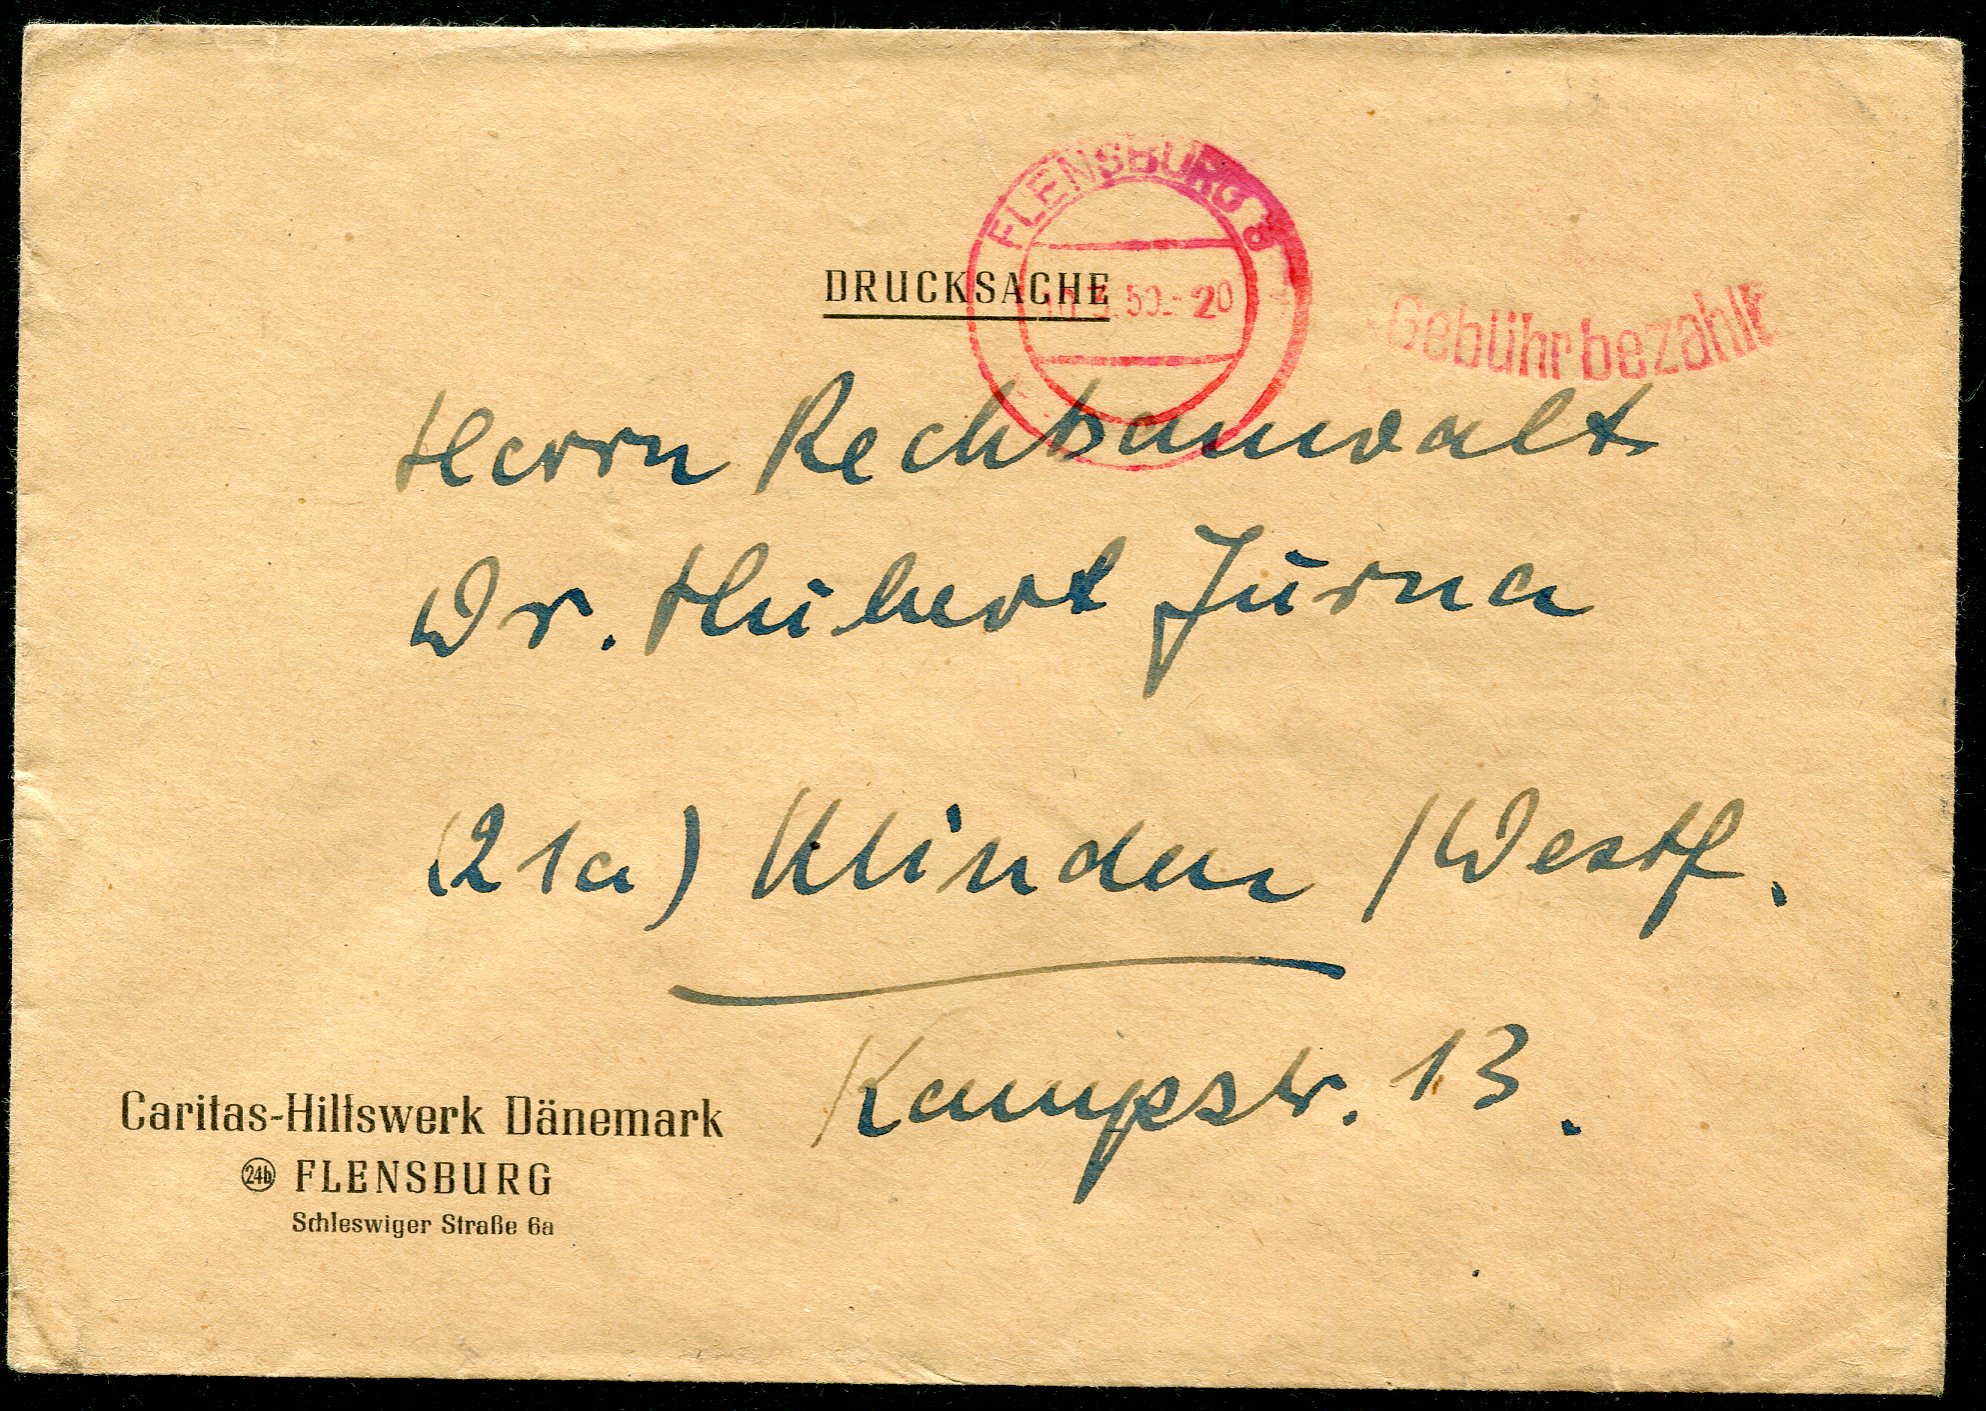 FLENSBURG
DRUCKSACHE
50.-20
Gebühr bezahlt
Herrn Rechtsanwalt
Dr. Hubert Jurna
(21a) Minden /Westf.
Kampstr. 13.
Caritas-Hilfswerk Dänemark
24b FLENSBURG
Schleswiger Straße 6a